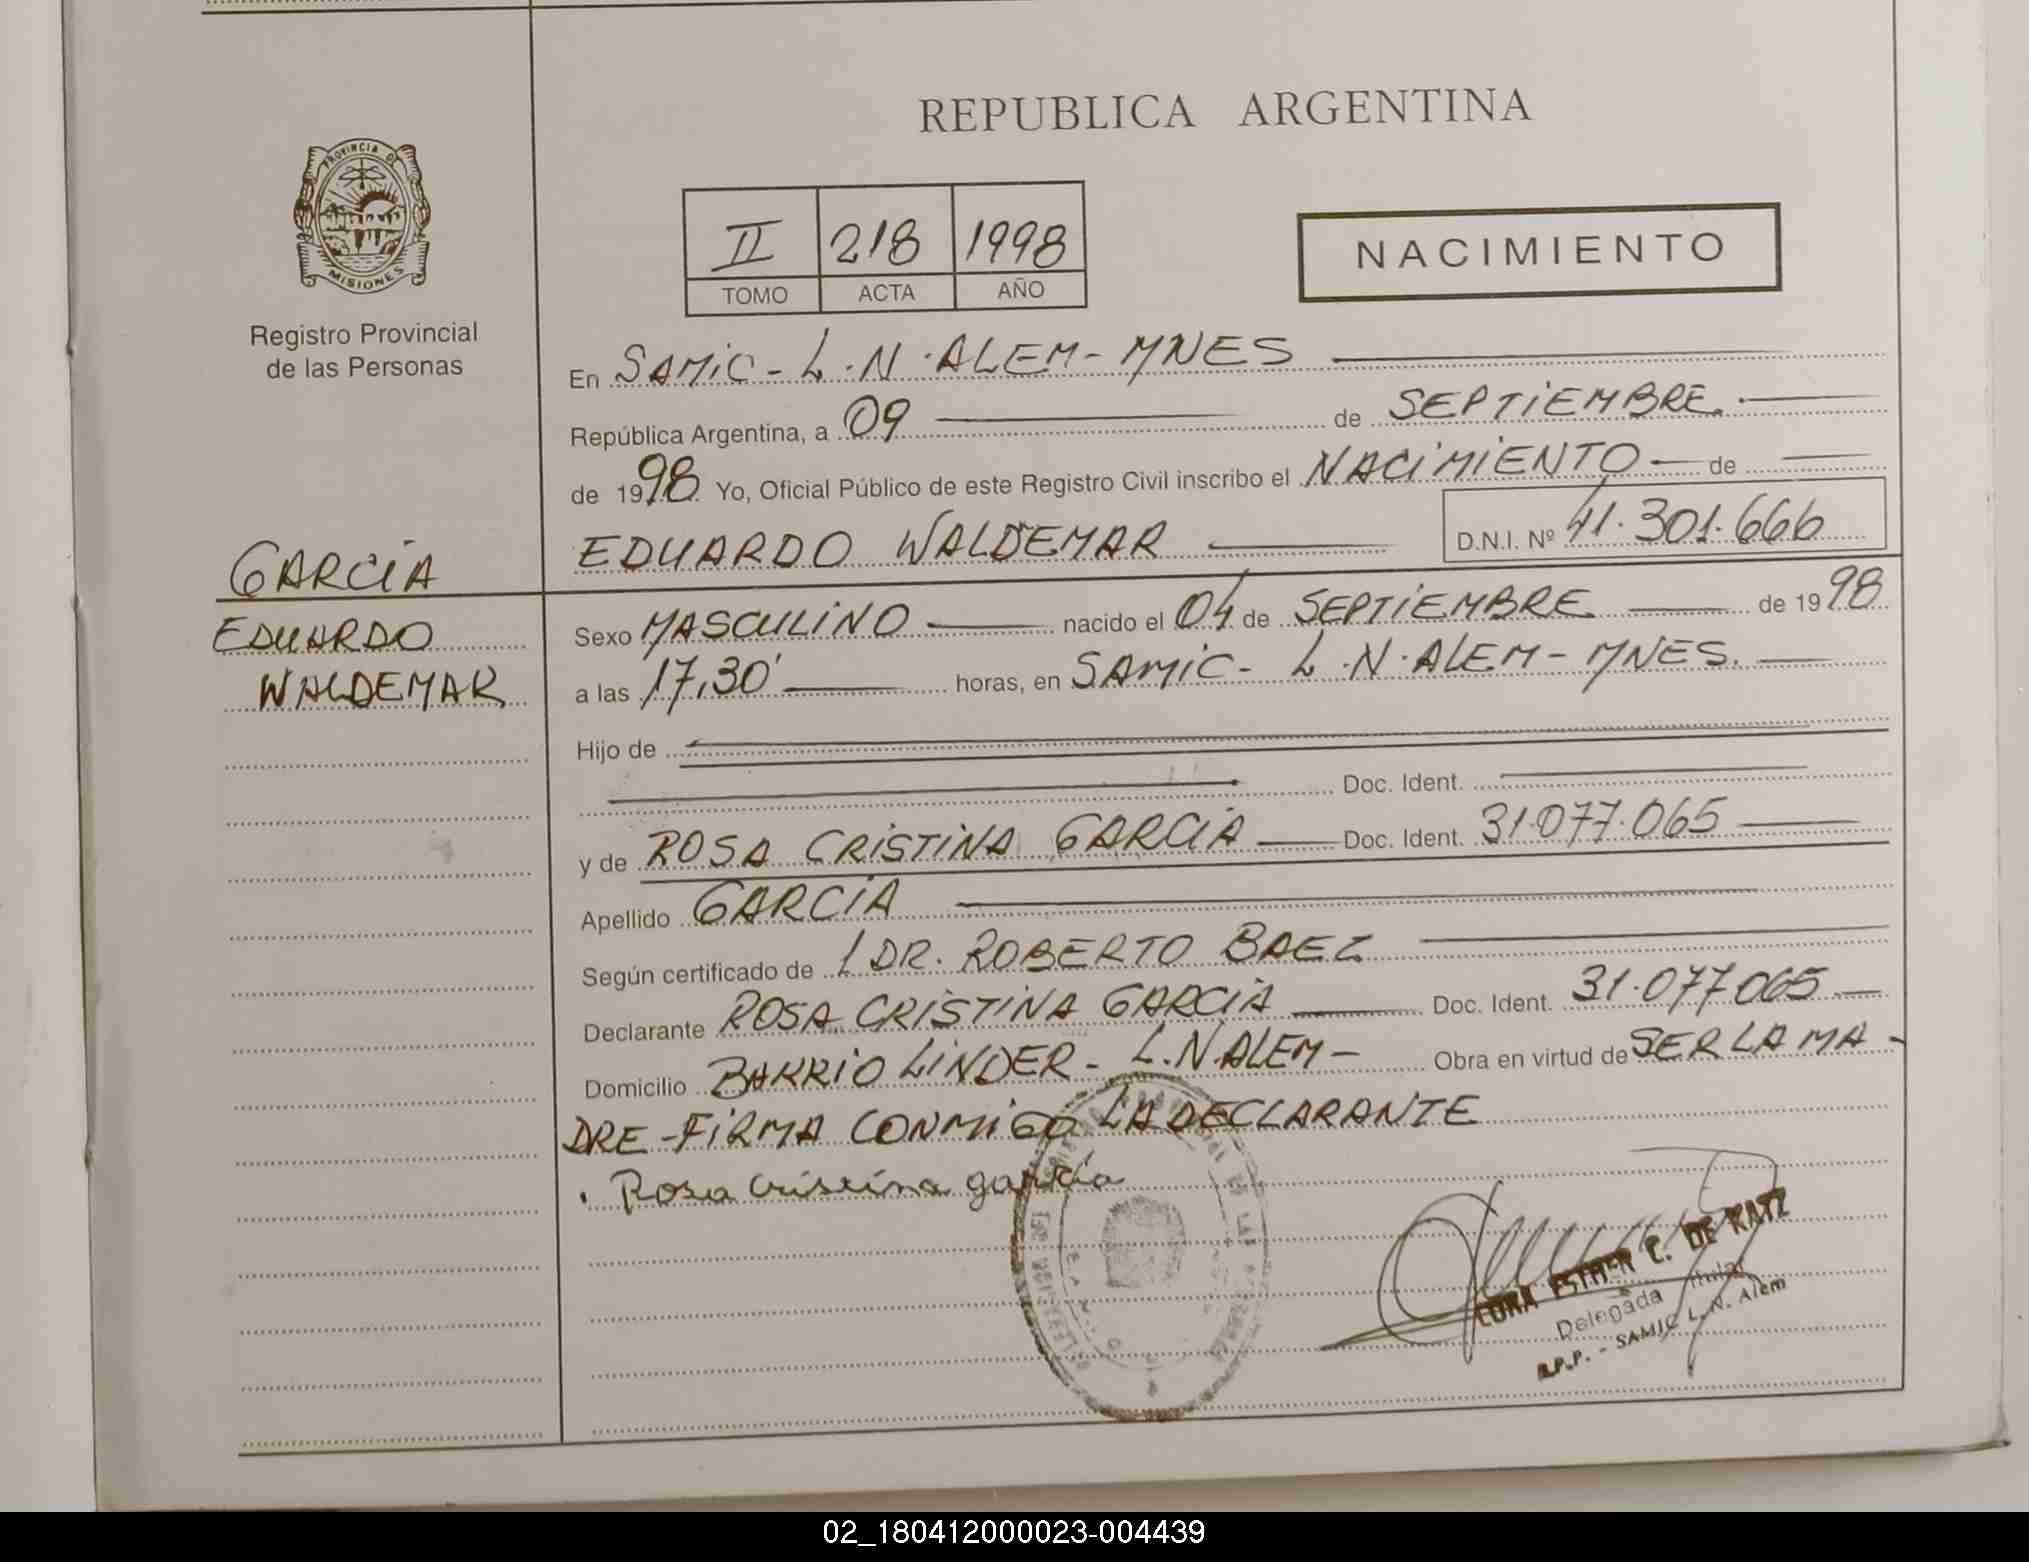 REPUBLICA ARGENTINA
PROVINCIA DE
MISIONES
Registro Provincial
de las Personas
II 218 1998
TOMO ACTA AÑO
NACIMIENTO
En SAMIC - L.N. ALEM - MNES
República Argentina, a 09 de SEPTIEMBRE
de 1998 Yo, Oficial Público de este Registro Civil inscribo el NACIMIENTO de
EDUARDO WALDEMAR D.N.I. Nº 41.301.666
GARCIA
EDUARDO
WALDEMAR
Sexo MASCULINO nacido el 04 de SEPTIEMBRE de 1998
a las 17,30' horas, en SAMIC - L.N. ALEM - MNES.
Hijo de
Doc. Ident.
y de ROSA CRISTINA GARCIA Doc. Ident. 31.077.065
Apellido GARCIA
Según certificado de DR. ROBERTO BAEZ
Declarante ROSA CRISTINA GARCIA Doc. Ident. 31.077065
Domicilio BARRIO LINDER - L.N. ALEM - Obra en virtud de SER LA MA-
DRE - FIRMA CONMIGO LA DECLARANTE
. Rosa Cristina garcía
ESTHER C. DE KATZ
Delegada Titular
R.P.P. - SAMIC L. N. Alem
02_180412000023-004439